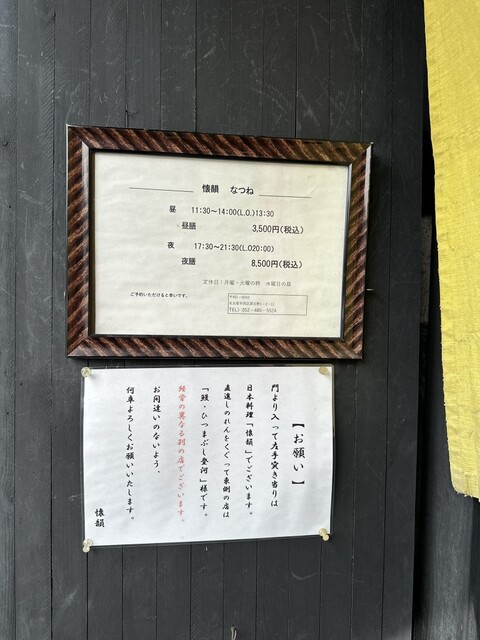 懐韻　なつね
昼　11:30～14:00(L.O.)13:30
昼膳　3,500円(税込)
夜　17:30～21:30(L.O20:00)
夜膳　8,500円(税込)
定休日：月曜・火曜の終　水曜日の昼
ご予約いただけると幸いです。
【お願い】
門より入って左手突き当りは
日本料理「懐韻」でございます。
直進しのれんをくぐって東側の店は
「鰻・ひつまぶし登河」様です。
経営の異なる別の店でございます。
お間違いのないよう、
何卒よろしくお願いいたします。
懐韻